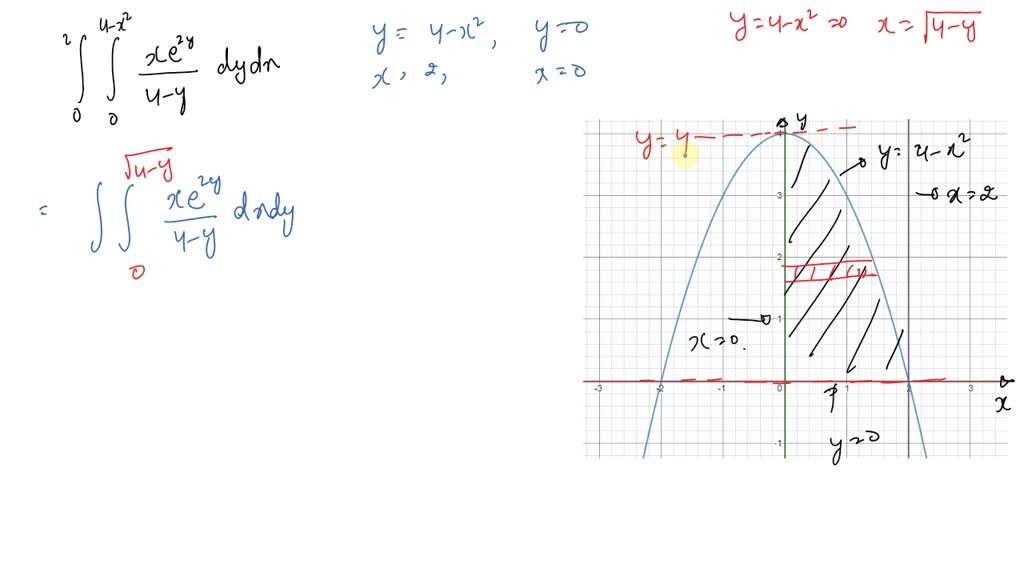 ∫₀² ∫₀^{4-x²} xe^{2y}/(4-y) dydx
y = 4-x², y=0
x, 2, x=0
y=4-x²=0 x=√(4-y)
= ∫ ∫₀^{√(4-y)} xe^{2y}/(4-y) dxdy
y=4
y
y= 4-x²
x=2
3
2
1
x=0.
-3 -2 -1 0 1 2 3
x
-1
y=0